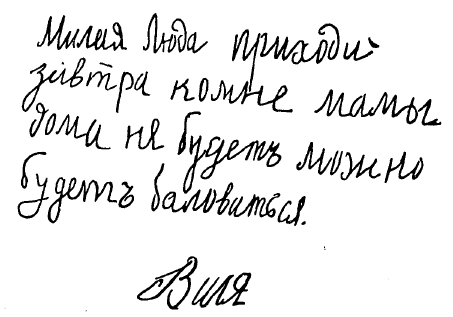 Милая Люда приходи
завтра комне мамы
дома ня будетъ можно
будетъ баловаться.
Виля